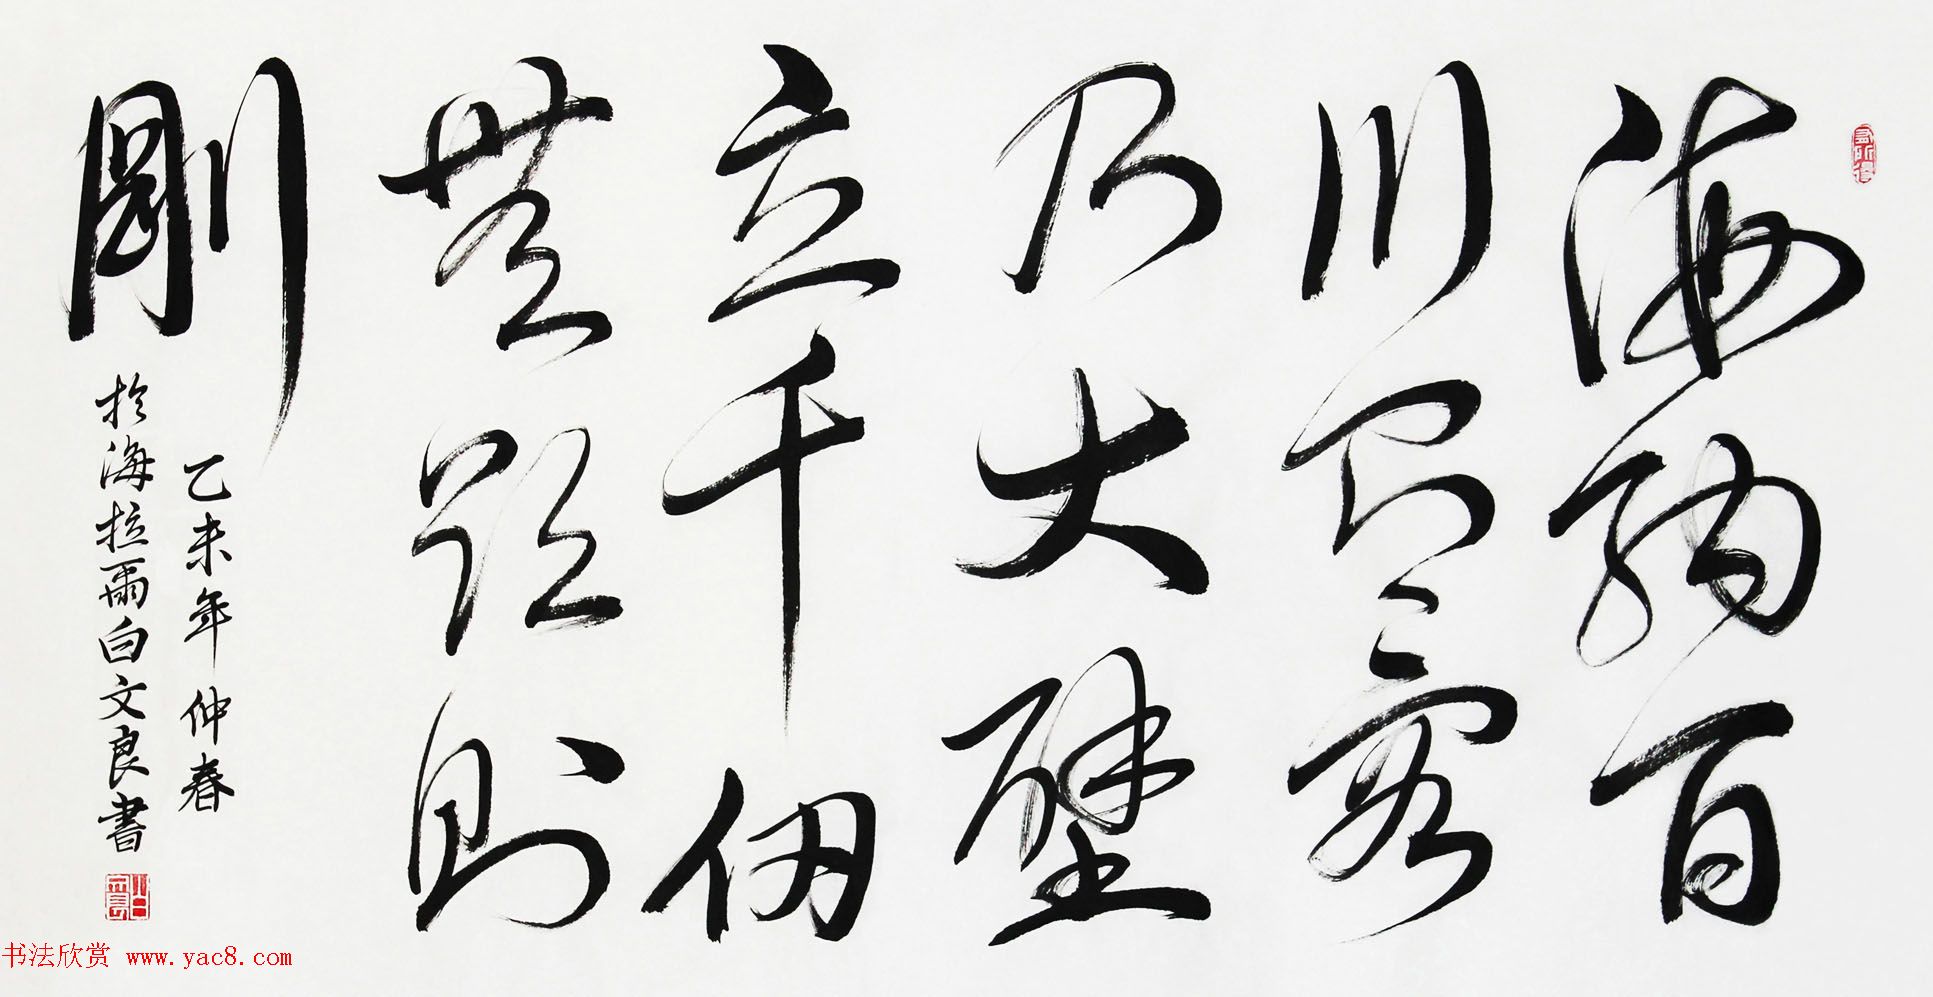 海納百
川有容
乃大壁
立千仞
無欲則
剛
乙未年仲春
於海拉爾白文良書
书法欣赏 www.yac8.com